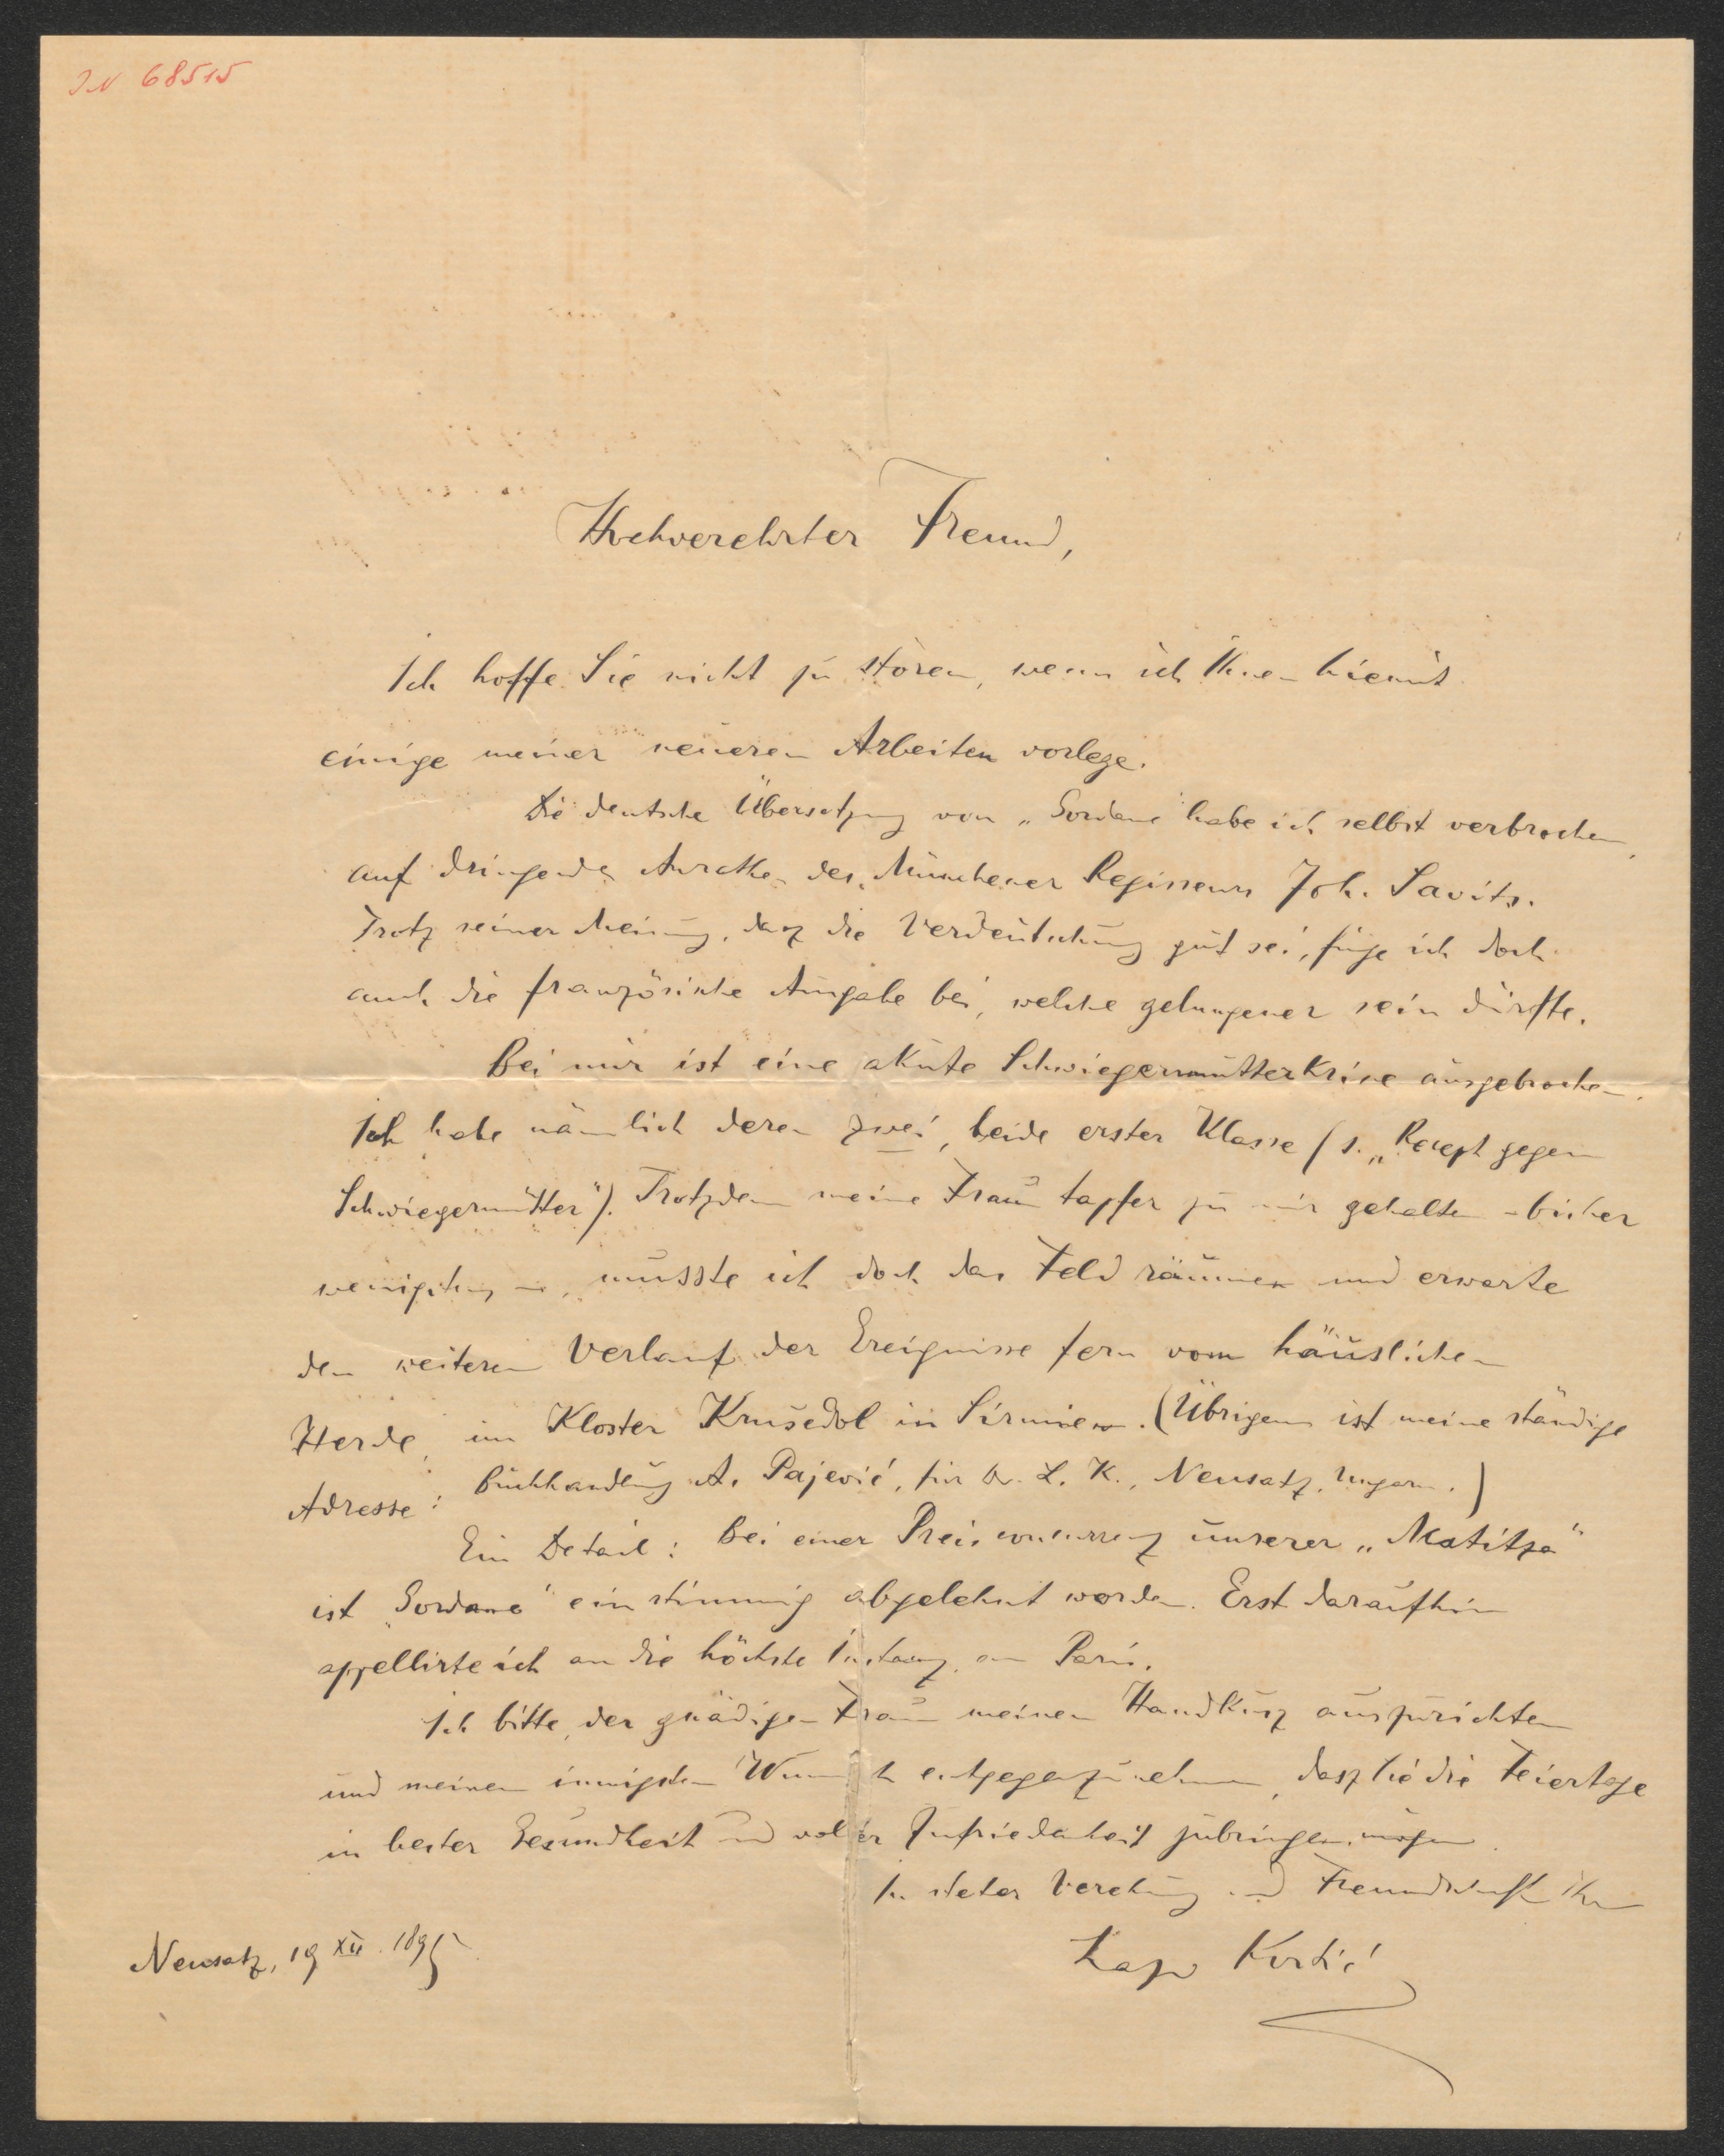 IN 68515
Hochverehrter Freund,
Ich hoffe Sie nicht zu stören, wenn ich Ihnen hiemit
einige meiner neueren Arbeiten vorlege.
Die deutsche Übersetzung von „Gordana" habe ich selbst verbrochen,
auf dringendes Anrathen des Münchener Regisseurs Joh. Savits.
Trotz seiner Meinung, dasz die Verdeutschung gut sei, füge ich doch
auch die französische Ausgabe bei, welche gelungener sein dürfte.
Bei mir ist eine akute Schwiegermutterkrise ausgebrochen.
Ich habe nämlich deren zwei, beide erster Klasse (s. „Recept gegen
Schwiegermütter"). Trotzdem meine Frau tapfer zu mir gehalten – bisher
wenigstens –, musste ich doch das Feld räumen und erwarte
den weiteren Verlauf der Ereignisse fern vom häuslichen
Herde, im Kloster Krušedol in Sirmien. (Übrigens ist meine ständige
Adresse: Buchhandlung A. Pajević, für Dr. L. K., Neusatz, Ungarn.)
Ein Detail: Bei einer Preisconcurrenz unserer „Matitza"
ist „Gordana" einstimmig abgelehnt worden. Erst daraufhin
appellirte ich an die höchste Instanz, an Paris.
Ich bitte, der gnädigen Frau meinen Handkusz auszurichten
und meinen innigsten Wunsch entgegenzunehmen, dasz Sie die Feiertage
in bester Gesundheit und voller Zufriedenheit zubringen mögen.
In steter Verehrung und Freundschaft Ihr
Lazo Kostić
Neusatz, 19 XII. 1895